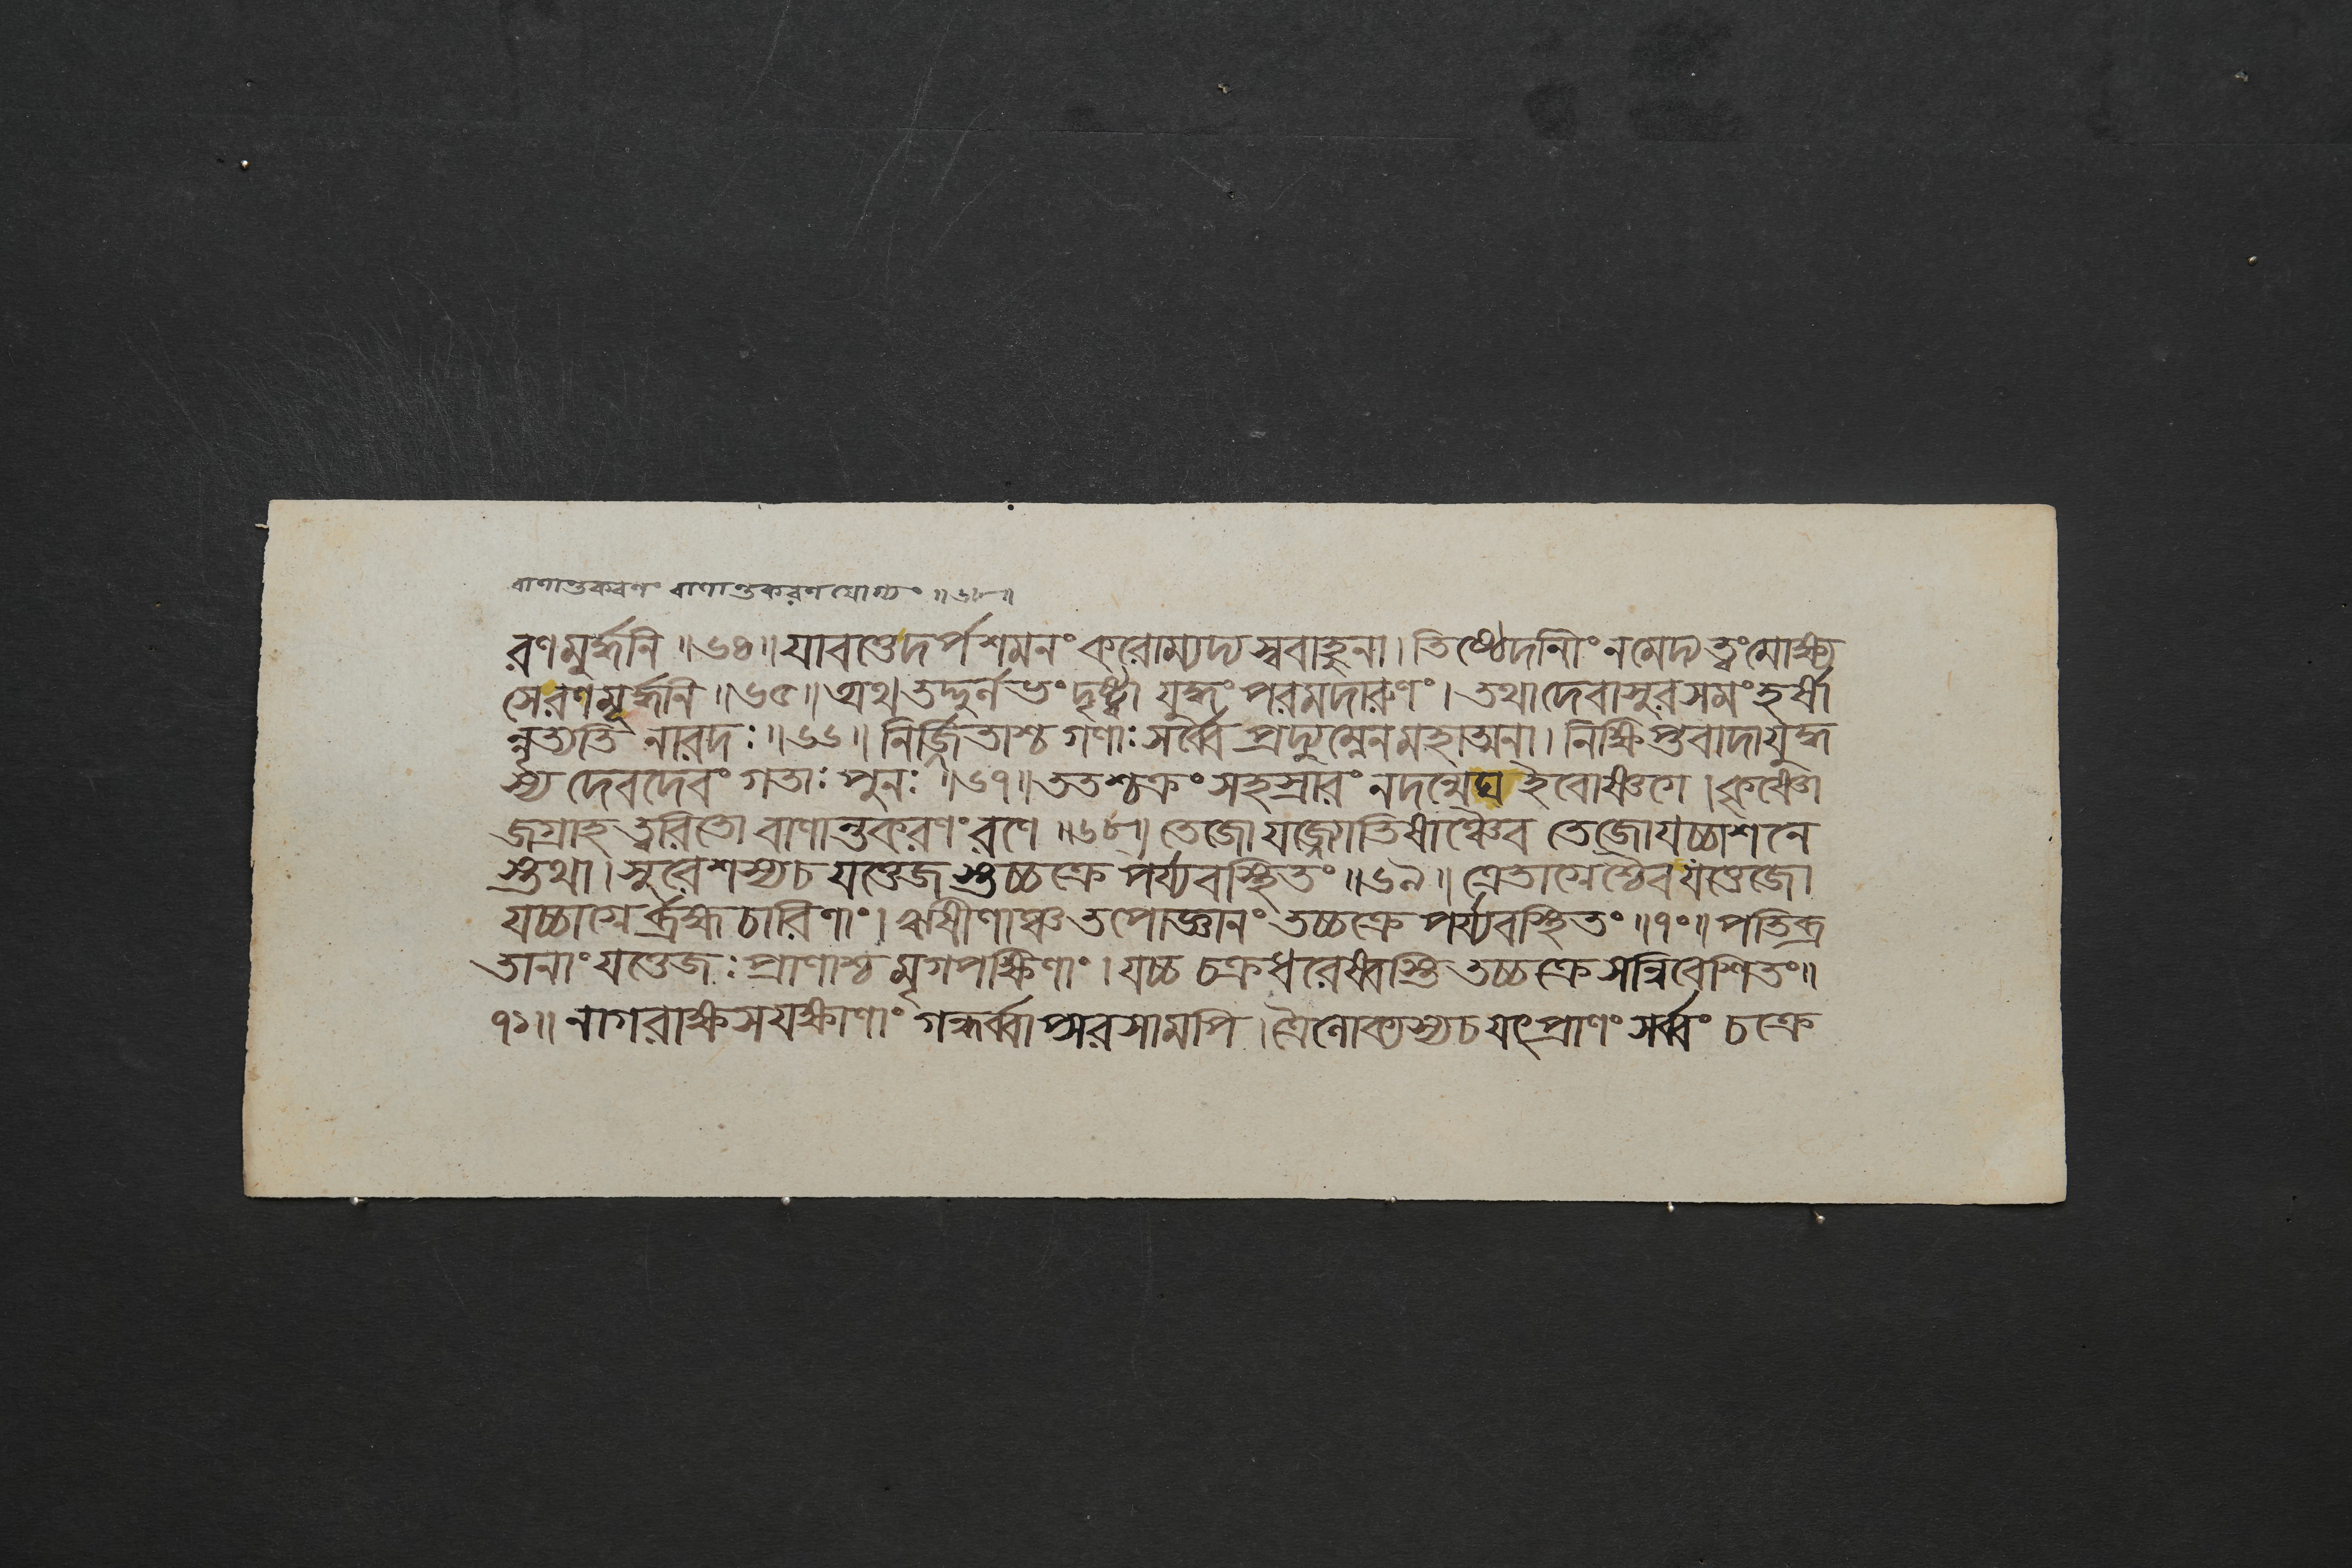 বাণান্তকরণং বাণান্তকরণযোগ্যং ॥৬৮॥
রণমুর্দ্ধনি ॥৬৪॥ যাবত্তেদর্পশমনং করোম্যদ্য স্ববাহুনা। তিষ্ঠেদানীং নমেদ্য ত্বংমোক্ষ্য
সেরণমূর্দ্ধনি ॥৬৫॥ অথ তদ্দুর্লভং দৃষ্ট্বা যুদ্ধং পরমদারুণং। তথাদেবাসুরসমং হর্ষা
ন্নৃত্যতি নারদঃ ॥৬৬॥ নির্জ্জিতাশ্চ গণাঃ সর্ব্বে প্রদ্যুম্নেনমহাত্মনা। নিক্ষিপ্তবাদাযুদ্ধ
স্য দেবদেবং গতাঃ পুনঃ ॥৬৭॥ ততশ্চক্রং সহস্রারং নদন্মেঘ ইবোষ্ণগে। কৃষ্ণো
জগ্রাহ ত্বরিতো বাণান্তকরণং রণে ॥৬৮॥ তেজো যজ্জ্যোতিষাঞ্চৈব তেজোযচ্চাশনে
স্তথা। সুরেশস্যচ যত্তেজ স্তচ্চক্রে পর্য্যবস্থিতং ॥৬৯॥ ত্রেতাগ্নেশ্চৈব যত্তেজো
যচ্চাগ্নের্ব্রহ্মচারিণাং। ঋষীণাঞ্চ তপোজ্ঞানং তচ্চক্রে পর্য্যবস্থিতং ॥৭০॥ পতিব্র
তানাং যত্তেজঃ প্রাণাশ্চ মৃগপক্ষিণাং। যচ্চ চক্রধরেষ্বস্তি তচ্চক্রে সন্নিবেশিতং॥
৭১॥ নাগরাক্ষসযক্ষাণাং গন্ধর্ব্বাপ্সরসামপি। ত্রৈলোক্যস্যচ যৎপ্রাণং সর্ব্বং চক্রে